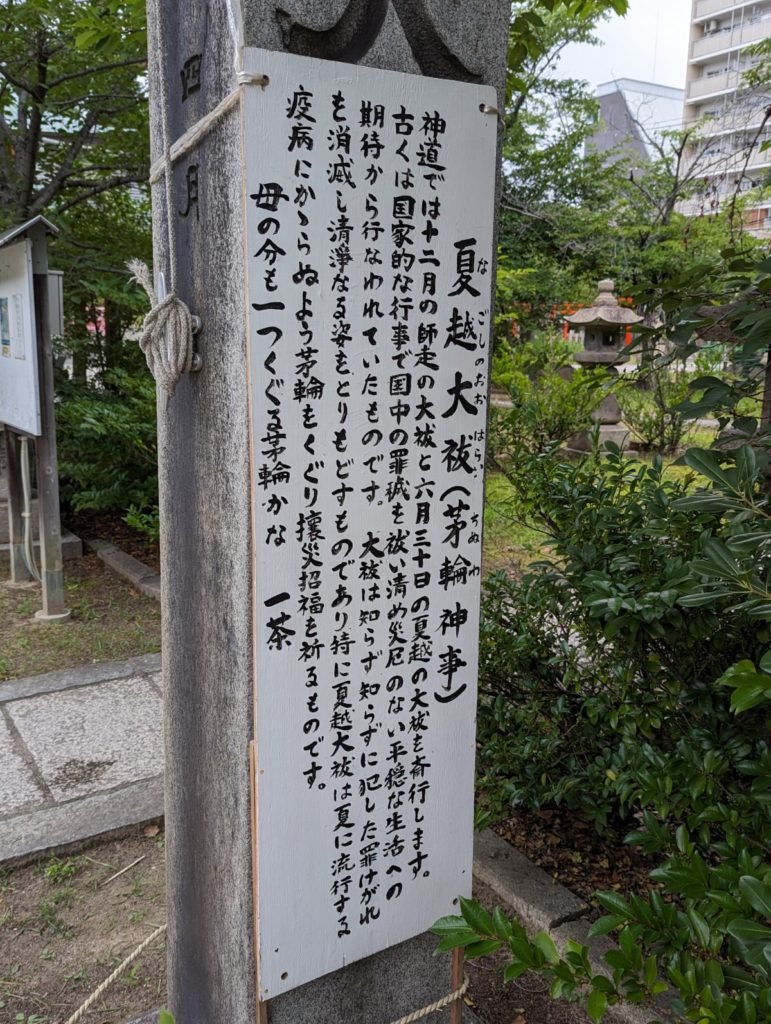 夏越大祓(茅輪神事)
なごしのおおはらい ちぬわ
神道では十二月の師走の大祓と六月三十日の夏越の大祓を斎行します。
古くは国家的な行事で国中の罪穢を祓い清め災厄のない平穏な生活への
期待から行なわれていたものです。大祓は知らず知らずに犯した罪けがれ
を消滅し清浄なる姿をとりもどすものであり特に夏越大祓は夏に流行する
疫病にかゝらぬよう茅輪をくぐり攘災招福を祈るものです。
母の分も一つくぐる茅輪かな 一茶
四月